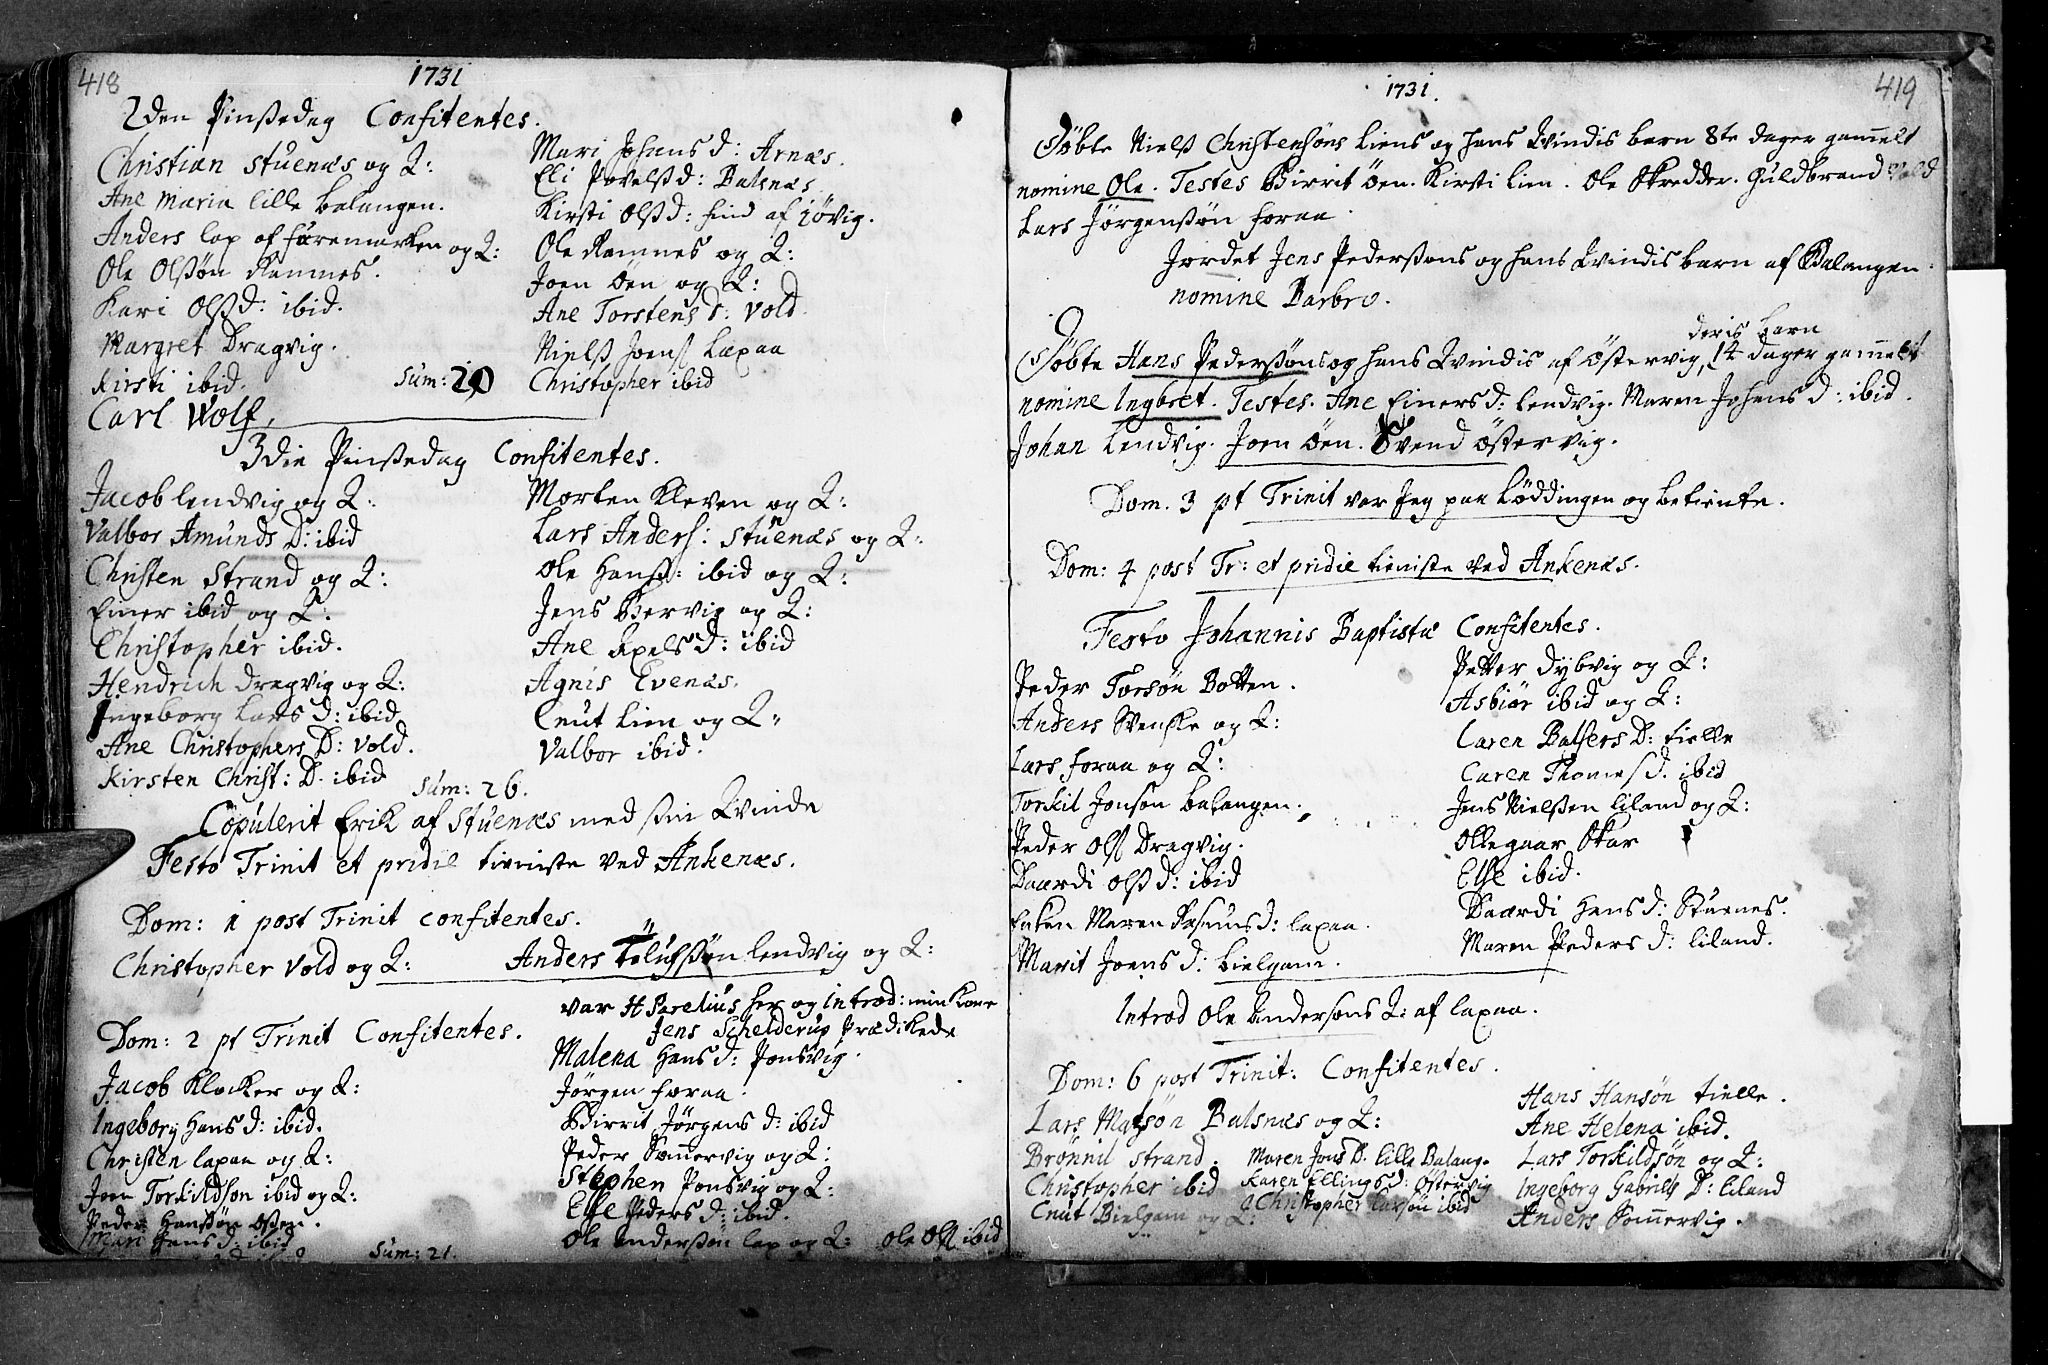 418
1731
2den Pinsedag Confitentes.
Christian Stuenæs og Q:
Ane Maria lille balangen.
Anders lap af faremarken og Q:
Ole Olssøn Ramnes.
Kari Olsd: ibid.
Margret Dragvig.
Kirsti ibid.
Carl Wolf,
Sum: 20
Mari Johansd: Arnæs.
Eli Povelsd: Balsnæs
Kirsti Olsd: find af jøvig.
Ole Ramnes og Q:
Joen Øen og Q:
Ane Torstens d: Vold.
Niels Joens Laxaa
Christopher ibid
3die Pinsedag Confitentes.
Jacob lendvig og Q:
Valbor Amunds D: ibid
Christen Strand og Q:
Einer ibid og Q:
Christopher ibid.
Hendrich Dragvig og Q:
Ingeborg Lars d: ibid
Ane Christophers D: Vold.
Kirsten Christ: D. ibid
Sum: 26.
Morten Kleven og Q:
Lars Anders: Stuenæs og Q:
Ole Hans: ibid og Q:
Jens Bervig og Q:
Ane Axels d: ibid
Agnis Evenæs.
Cnut Lien og Q:
Valbor ibid.
Copulerit Erik af Stuenæs med sin Qvinde
Festo Trinit et pridie tieniste ved Ankenæs.
Dom: 1 post Trinit confitentes.
Christopher Vold og Q:
Anders lendvig og Q:
Dom: 2 pt Trinit Confitentes.
var H Parelius her og introd: min Kone
Jens Schelderup Prædikede
Jacob Klocker og Q:
Ingeborg Hans d: ibid.
Christen laxaa og Q:
Joen Torkildson ibid og Q:
Peder Hanssøn Osen.
Mari Hans d: ibid
Sum: 21.
Malena Hans d: Ponsvig.
Jørgen foraa.
Birrit Jørgens d: ibid
Peder Sommervig og Q:
Stephen Ponsvig og Q:
Else Peders d: ibid.
Ole Anderssøn lap og Q: Ole Ols ibid
1731.
419
Døbte Niels Christensøns Liens og hans Qvindis barn 8te dager gamelt
nomine Ole. Testes Birrit Øen. Kirsti Lien. Ole Skredder. Guldbrand Vold
Lars Jørgenssøn foraa.
Jordet Jens Pederssøns og hans Qvindis barn af Balangen.
nomine Barbro.
deris barn
Døbte Hans Pederssøns og hans Qvindis af Østervig, 14 dager gamelt
nomine Ingbret. Testes. Ane Einersd: lendvig. Maren Johans d: ibid.
Johan Lendvig. Joen Øen. Svend Østervig.
Dom. 3 pt Trinit var Jeg paa Løddingen og betiente.
Dom: 4 post Tr: et pridie tieniste ved Ankenæs.
Festo Johannis Baptistæ Confitentes.
Peder Torsøn Botten.
Anders Svenske og Q:
Lars foraa og Q:
Torkil Jonson balangen.
Peder Ols Dragvig.
Daardi Ols d: ibid
Enken Maren Rasmus d: laxaa.
Marit Joens d: Lielgam.
Petter Dybvig og Q:
Asbiør ibid og Q:
Caren Balsers D: tielle
Caren Thomes d. ibid
Jens Nielssen liland og Q:
Ollegaar Skar
Else ibid.
Daardi Hans d: Stuenes.
Maren Peders d: liland.
Introd Ole Andersøns Q: af laxaa.
Dom: 6 post Trinit: Confitentes.
Lars Matsøn Balsnæs og Q:
Brønnil strand.
Christopher ibid
Cnut Bielgam og Q:
Maren Jons D. lille Balang.
Karen Ellings d: Østervig
Christopher Larsøn ibid
Hans Hansøn tielle.
Ane Helena ibid.
Lars Torkildsøn og Q:
Ingeborg Gabriels D: liland
Anders Sommervig.